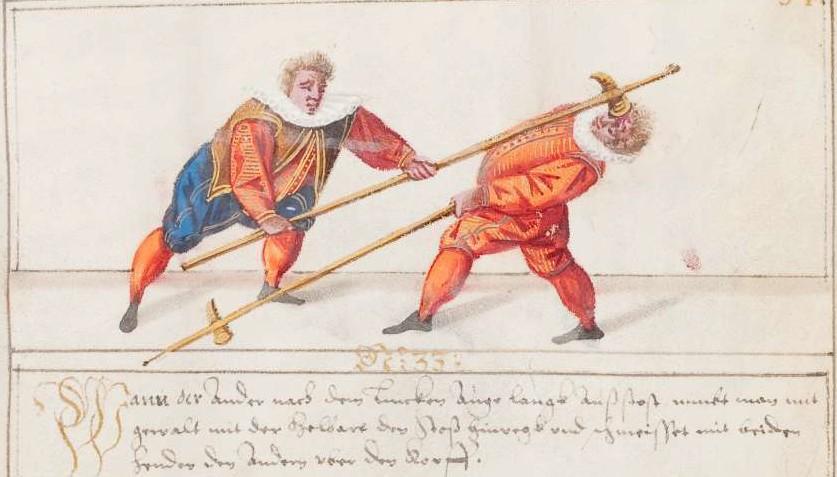 N: 33:
Wann der Ander nach dem Lincken Auge langk Außstost nimbt man mit
gewalt mit der Helbart den Stoß hinwegk vnd schmeisset mit beiden
henden den Andern vber den Kopff.